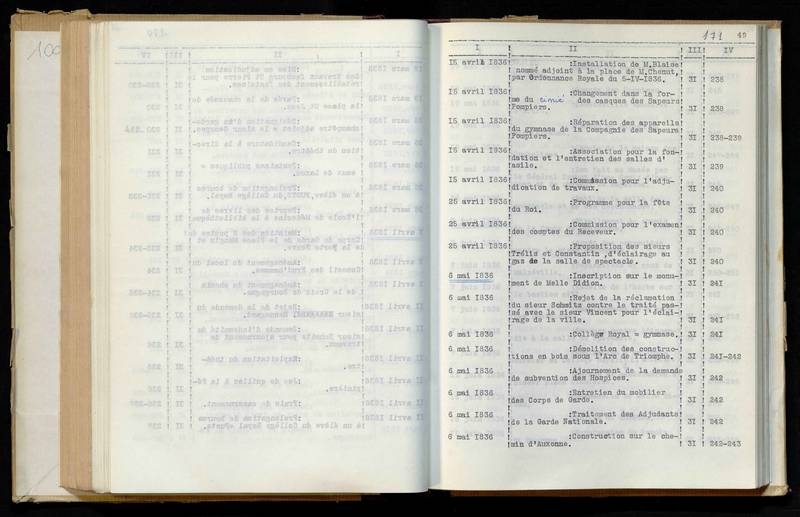 100
171 49
I II III IV
15 avril 1836 :Installation de M.Blaise
nommé adjoint à la place de M.Chenut,
par Ordonnance Royale du 5-IV-1836. 31 238
15 avril 1836 :Changement dans la for-
me du cimié des casques des Sapeurs
Pompiers. 31 238
15 avril 1836 :Réparation des appareils
du gymnase de la Compagnie des Sapeurs
Pompiers. 31 238-239
15 avril 1836 :Association pour la fon-
dation et l'entretien des salles d'
asile. 31 239
15 avril 1836 :Commission pour l'adju-
dication de travaux. 31 240
25 avril 1836 :Programme pour la fête
du Roi. 31 240
25 avril 1836 :Commission pour l'examen
des comptes du Receveur. 31 240
25 avril 1836 :Proposition des sieurs
Trélis et Constantin ,d'éclairage au
gaz de la salle de spectacle. 31 240
6 mai 1836 :Inscription sur le monu-
ment de Melle Didion. 31 241
6 mai 1836 :Rejet de la réclamation
du sieur Schmitz contre le traité pas-
sé avec le sieur Vincent pour l'éclai-
rage de la ville. 31 241
6 mai 1836 :Collège Royal = gymnase. 31 241
6 mai 1836 :Démolition des construc-
tions en bois sous l'Arc de Triomphe. 31 241-242
6 mai 1836 :Ajournement de la demande
de subvention des Hospices. 31 242
6 mai 1836 :Entretien du mobilier
des Corps de Garde. 31 242
6 mai 1836 :Traitement des Adjudants
de la Garde Nationale. 31 242
6 mai 1836 :Construction sur le che-
min d'Auxonne. 31 242-243